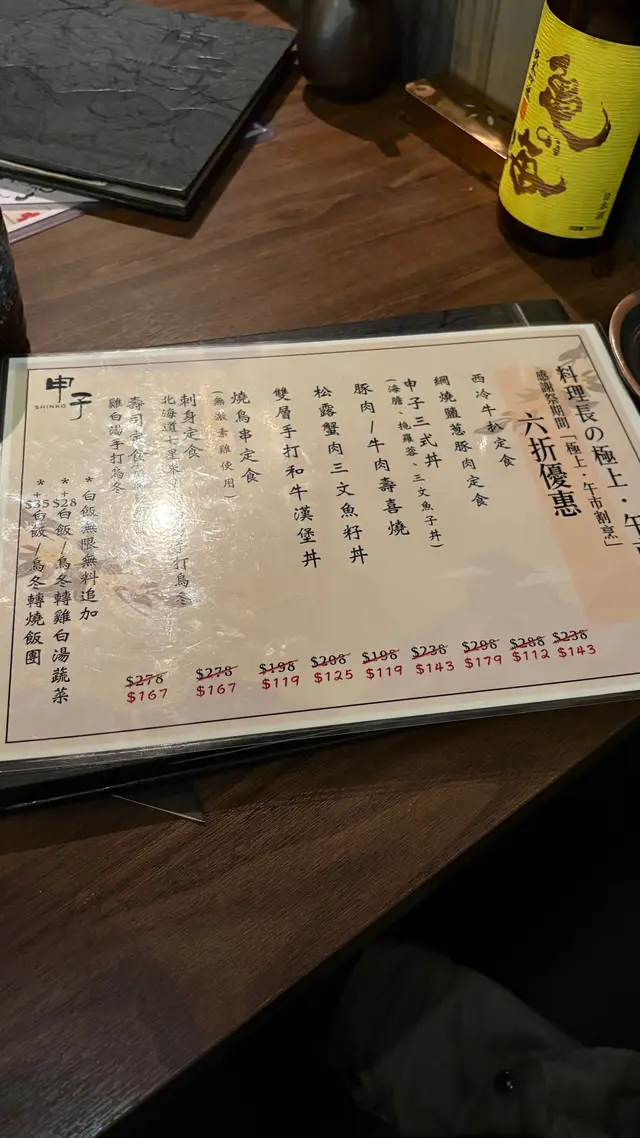 料理長の極上・午
感謝祭期間「極上・午市割烹」
六折優惠
西冷牛扒定食
$238
$143
網燒鹽葱豚肉定食
$288
$112
申子三式丼
(海膽、拖羅蓉、三文魚子丼)
$298
$179
豚肉/牛肉壽喜燒
$238
$143
松露蟹肉三文魚籽丼
$198
$119
雙層手打和牛漢堡丼
$208
$125
燒鳥串定食
(無激素雞使用)
$198
$119
刺身定食
北海道十里米/
手打烏冬
$278
$167
壽司定食
雞白湯手打烏冬
$278
$167
*白飯無限無料追加
*+$28白飯/烏冬轉雞白湯蔬菜
*+$35白飯/烏冬轉燒飯團
申子
SHINKO
亀の海
日本酒